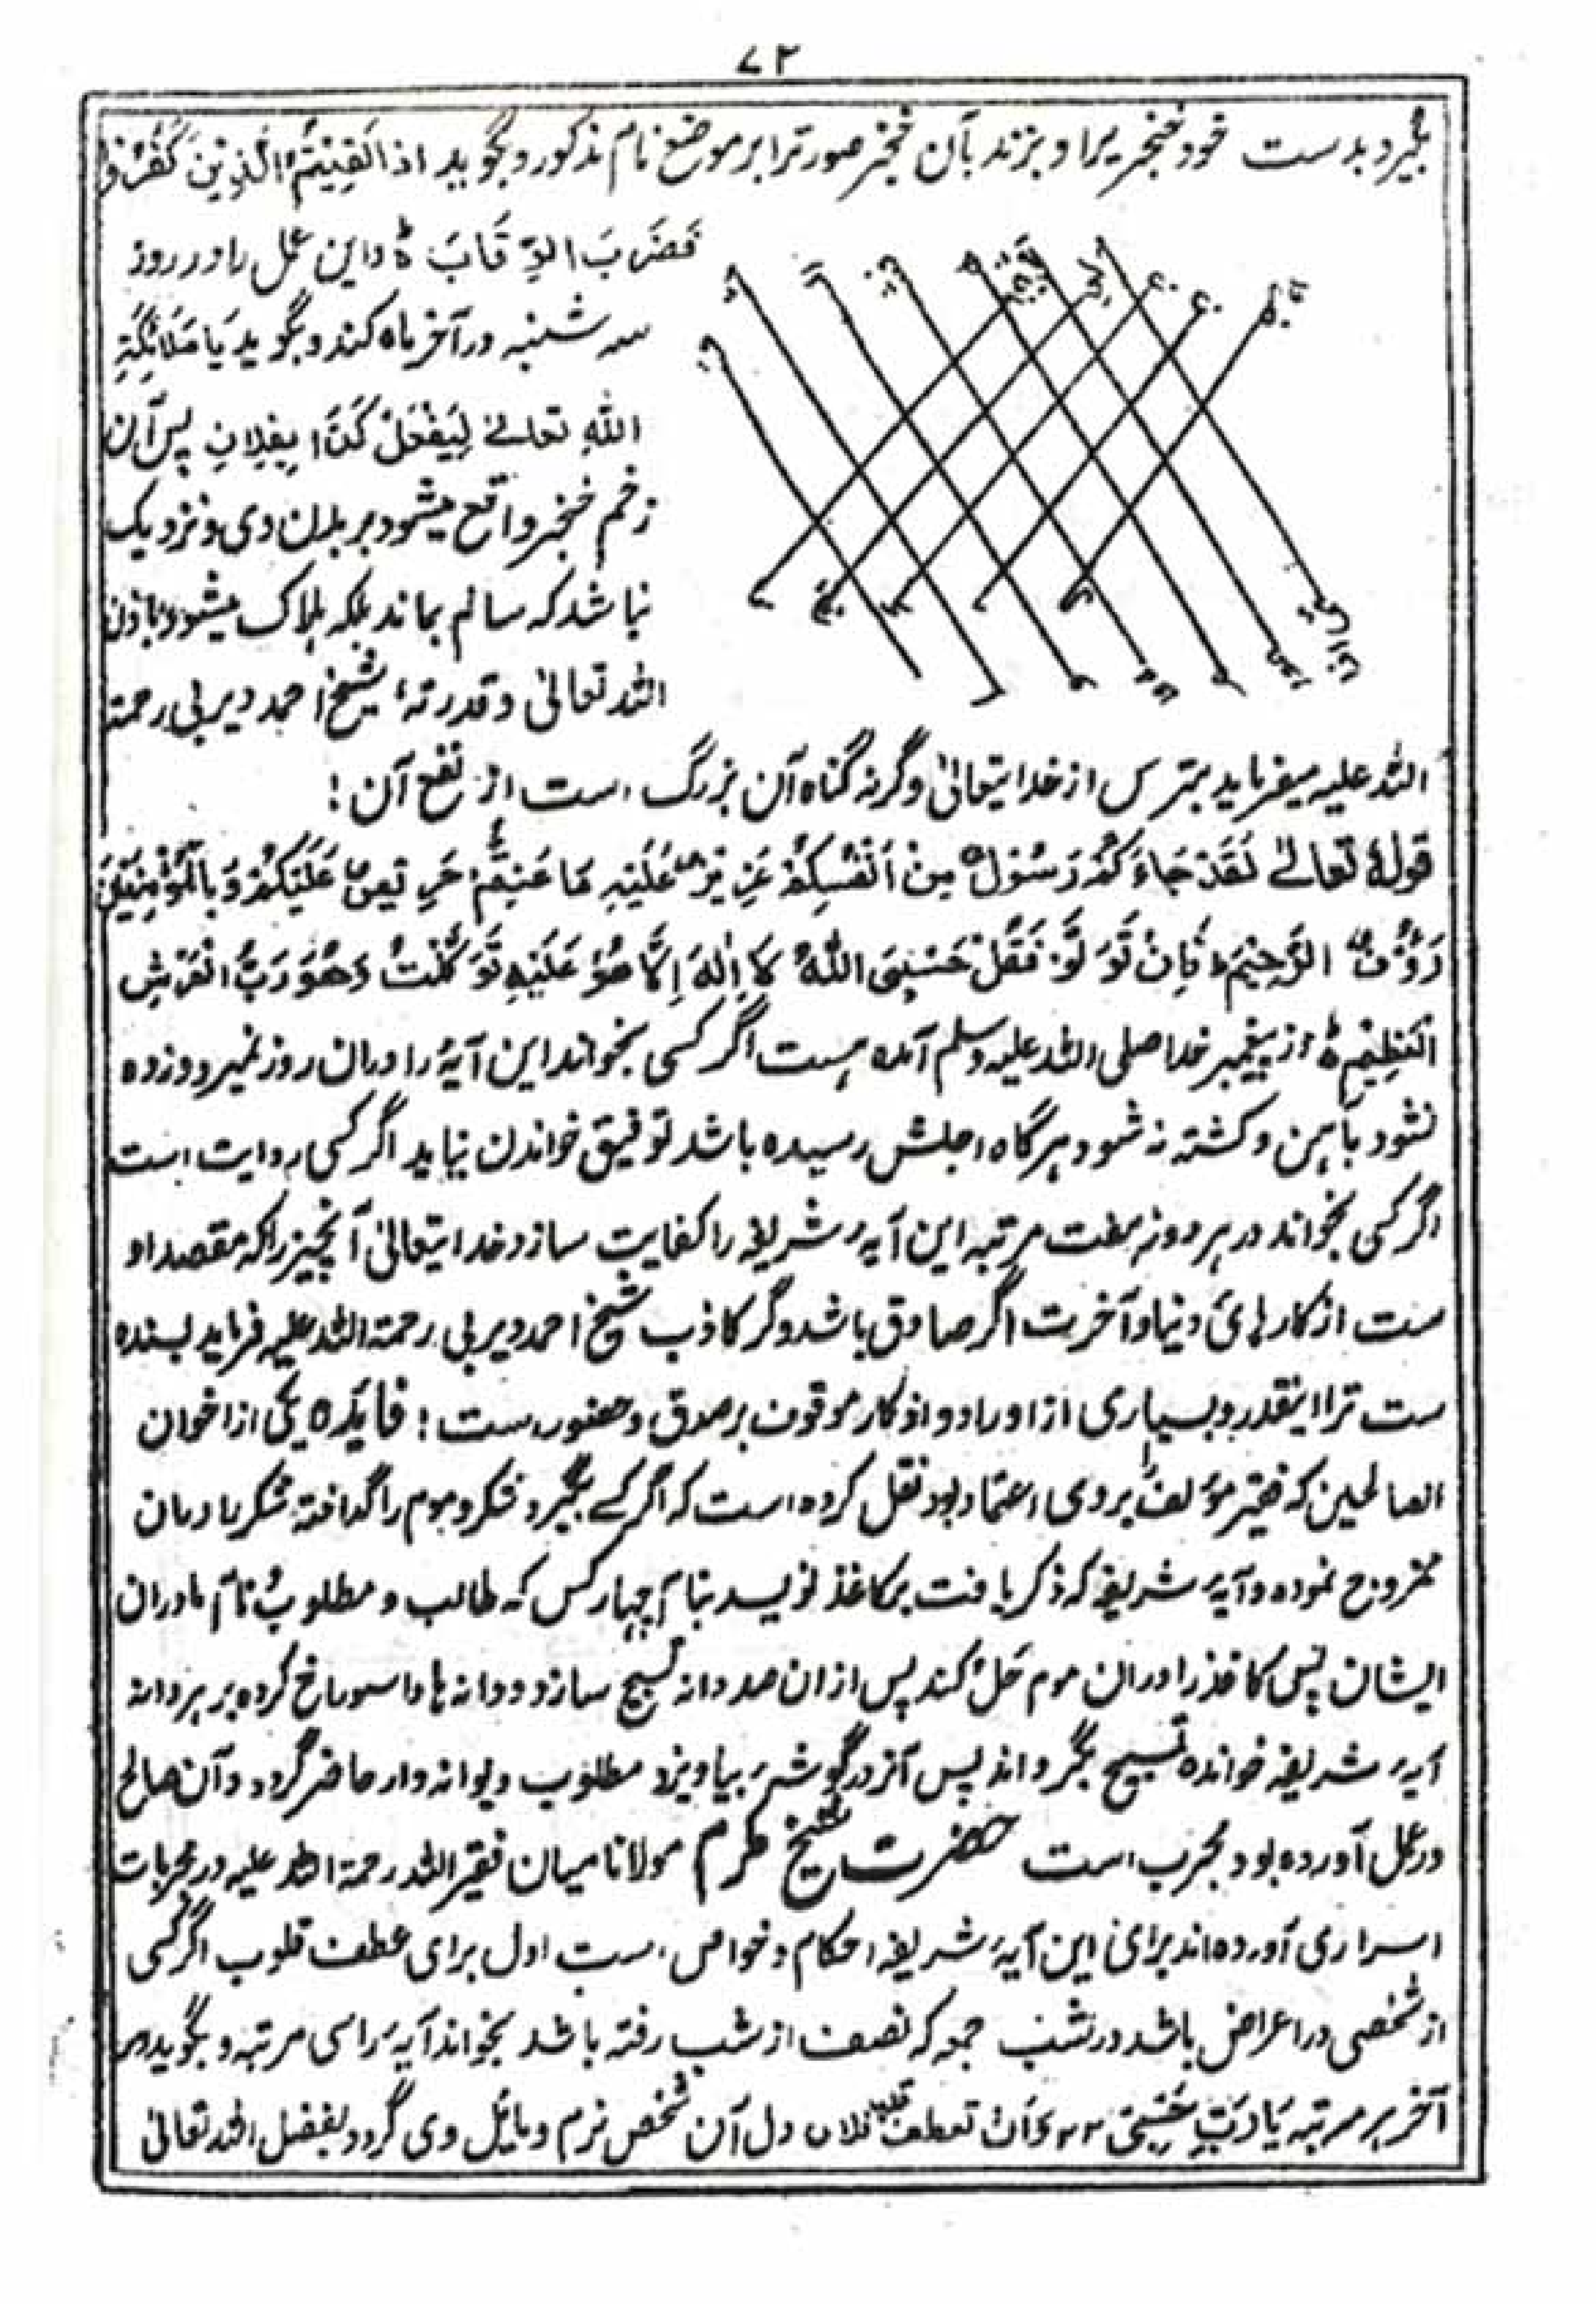 ۷۲
بگیرد بدست خود خنجریرا و بزند بآن خنجر صورترا بر موضع نام مذکور و بگوید اذا لَقِیْتُمُ الَّذِیْنَ کَفَرُوْا
فَضَرْبَ الرِّقَابَ ہ و این عمل را در روز
سہ شنبہ در آخر ماہ کند و بگوید یَا مَلَائِکَۃَ
اللّٰہِ تعالےٰ لِیَفْعَلْ کَذَا بِفِلَانٍ پس آن
زخم خنجر واقع میشود بر بدن وی و نزدیک
نباشد کہ سالم بماند بلکہ ہلاک میشود باذن
اللہ تعالیٰ و قدرتہ، شیخ احمد دیربی رحمۃ
اللہ علیہ میفرماید بترس از خدایتعالیٰ و گرنہ گناہ آن بزرگ است از نفع آن :
قولہٗ تعالےٰ لَقَدْ جَاءَکُمْ رَسُوْلٌ مِنْ اَنْفُسِکُمْ عَزِیْزٌ عَلَیْہِ مَا عَنِتُّمْ حَرِیْصٌ عَلَیْکُمْ وَ بِالْمُؤْمِنِیْنَ
رَؤُفٌ الرَّحِیْمَ ط فَاِنْ تَوَلَّوْ فَقُلْ حَسْبِیَ اللّٰہُ لَا اِلٰہَ اِلَّا ھُوَ عَلَیْہِ تَوَکَّلْتُ وَھُوَ رَبُّ الْعَرْشِ
الْعَظِیْمِ ہ از پیغمبر خدا صلی اللہ علیہ وسلم آمدہ ہست اگر کسی بخواند این آیۂ را در ان روز نمیرد و زدہ
نشود بآہن و کشتہ نہ شود ہر گاہ اجلش رسیدہ باشد توفیق خواندن نیابد اگر کسی روایت است
اگر کسی بخواند در ہر روز ہفت مرتبہ این آیہ شریفہ را کفایت سازد خدایتعالیٰ آنچیز را کہ مقصد او
ست از کارہائ دنیا و آخرت اگر صادق باشد و گر کاذب شیخ احمد دیربی رحمۃ اللہ علیہ فرماید بسندہ
ست ترا اینقدر و بسیاری از اوراد و اذکار موقوف بر صدق و حضور ست : فایدہ یکی از اخوان
الصالحین کہ فقیر مؤلف را بر وی اعتماد بود نقل کردہ است کہ اگر کسے بگیرد شکر و موم را گداختہ شکر با و مان
ممزوج نمودہ و آیہ شریفہ کہ ذکر یافت بر کاغذ نویسد بنام چہار کس کہ طالب و مطلوب و نام مادران
ایشان پس کاغذ را در ان موم حل کند پس از ان صد دانہ تسبیح سازد و دانہ ہا را سوراخ کردہ بر ہر دانہ
آیہ شریفہ خواندہ تسبیح بگرداند پس آنرا در گوشہ بیاویزد مطلوب دیوانہ وار حاضر گردد و آن صالح
در عمل آوردہ بود مجرب است حضرت شیخ مکرم مولانا میان فقیر اللہ رحمۃ اللہ علیہ در مجربات
اسراری آوردہ اند برای این آیہ شریفہ احکام و خواص است اول برای عطف قلوب اگر کسی
از شخصی در اعراض باشد در شب جمعہ کہ نصف از شب رفتہ باشد بخواند آیہ را سی مرتبہ و بگوید در
آخر ہر مرتبہ یَا رَبِّ حَسْبِیَ تعطف قلب فلان دل آن شخص نرم و مایل وی گردد بفضل اللہ تعالیٰ